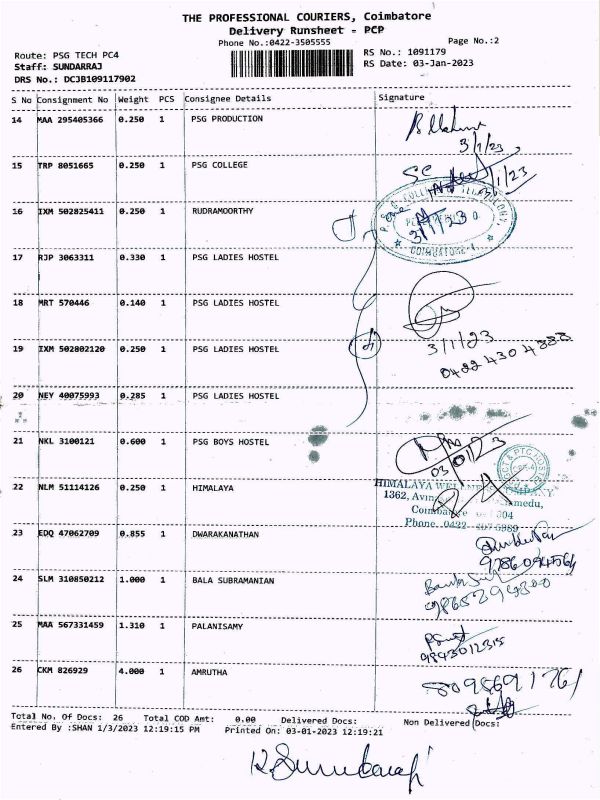 THE PROFESSIONAL COURIERS, Coimbatore
Delivery Runsheet - PCP
Phone No.:0422-3505555 Page No.:2
Route: PSG TECH PC4 RS No.: 1091179
Staff: SUNDARRAJ RS Date: 03-Jan-2023
DRS No.: DCJB109117902
S No Consignment No Weight PCS Consignee Details Signature
14 MAA 295405366 0.250 1 PSG PRODUCTION
3/1/23
15 TRP 8051665 0.250 1 PSG COLLEGE
16 IXM 502825411 0.250 1 RUDRAMOORTHY
COIMBATORE
17 RJP 3063311 0.330 1 PSG LADIES HOSTEL
18 MRT 570446 0.140 1 PSG LADIES HOSTEL
19 IXM 502802120 0.250 1 PSG LADIES HOSTEL 3/1/23
0422 430 4888
20 NEY 40075993 0.285 1 PSG LADIES HOSTEL
21 NKL 3100121 0.600 1 PSG BOYS HOSTEL
22 NLM 51114126 0.250 1 HIMALAYA
HIMALAYA
1362,
Phone 0422
23 EDQ 47062709 0.855 1 DWARAKANATHAN
24 SLM 310850212 1.000 1 BALA SUBRAMANIAN
25 MAA 567331459 1.310 1 PALANISAMY
9843012315
26 CKM 826929 4.000 1 AMRUTHA
Total No. Of Docs: 26 Total COD Amt: 0.00 Delivered Docs: Non Delivered Docs:
Entered By :SHAN 1/3/2023 12:19:15 PM Printed On: 03-01-2023 12:19:21